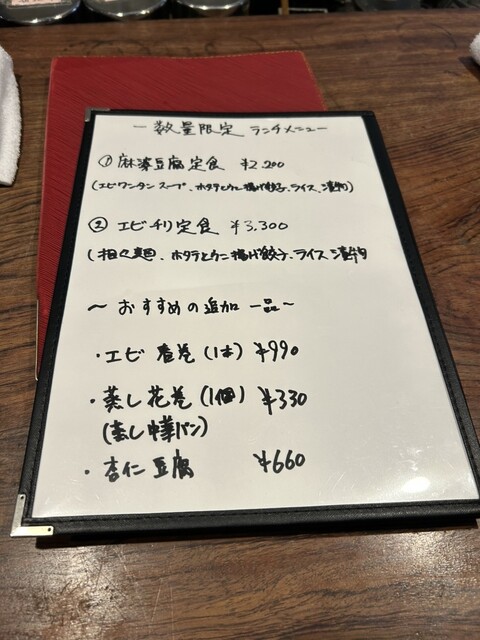 ー数量限定 ランチメニューー
① 麻婆豆腐定食 ¥2,200
(エビワンタンスープ、ホタテとカニ揚げ餃子、ライス、漬物)
② エビチリ定食 ¥3,300
(担々麺、ホタテとカニ揚げ餃子、ライス 漬物)
～ おすすめの追加 一品～
・エビ 春巻 (1本) ¥990
・蒸し花巻 (1個) ¥330
(蒸し中華パン)
・杏仁豆腐 ¥660